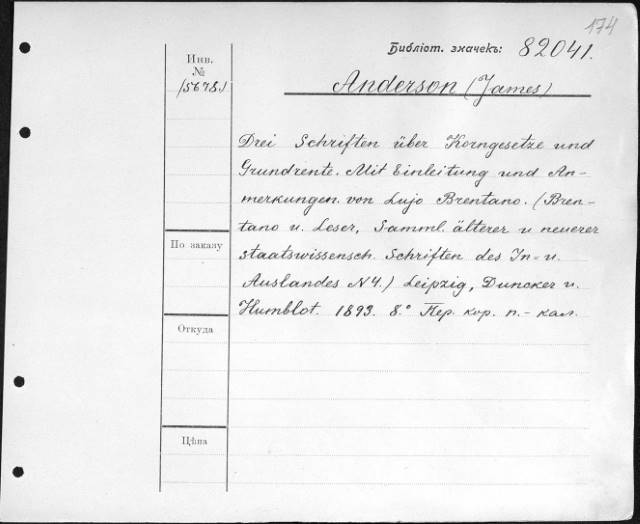 174
Библіот. значекъ: 82041.
Инв.
№
15678.
Anderson (James)
Drei Schriften über Korngesetze und
Grundrente. Mit Einleitung und An-
merkungen von Lujo Brentano. (Bren-
tano u. Leser, Samml. älterer u neuerer
staatswissensch. Schriften des In- u.
Auslandes N 4.) Leipzig, Duncker u.
Humblot. 1893. 8.° Пер. кор. п.- кал.
По заказу
Откуда
Цѣна